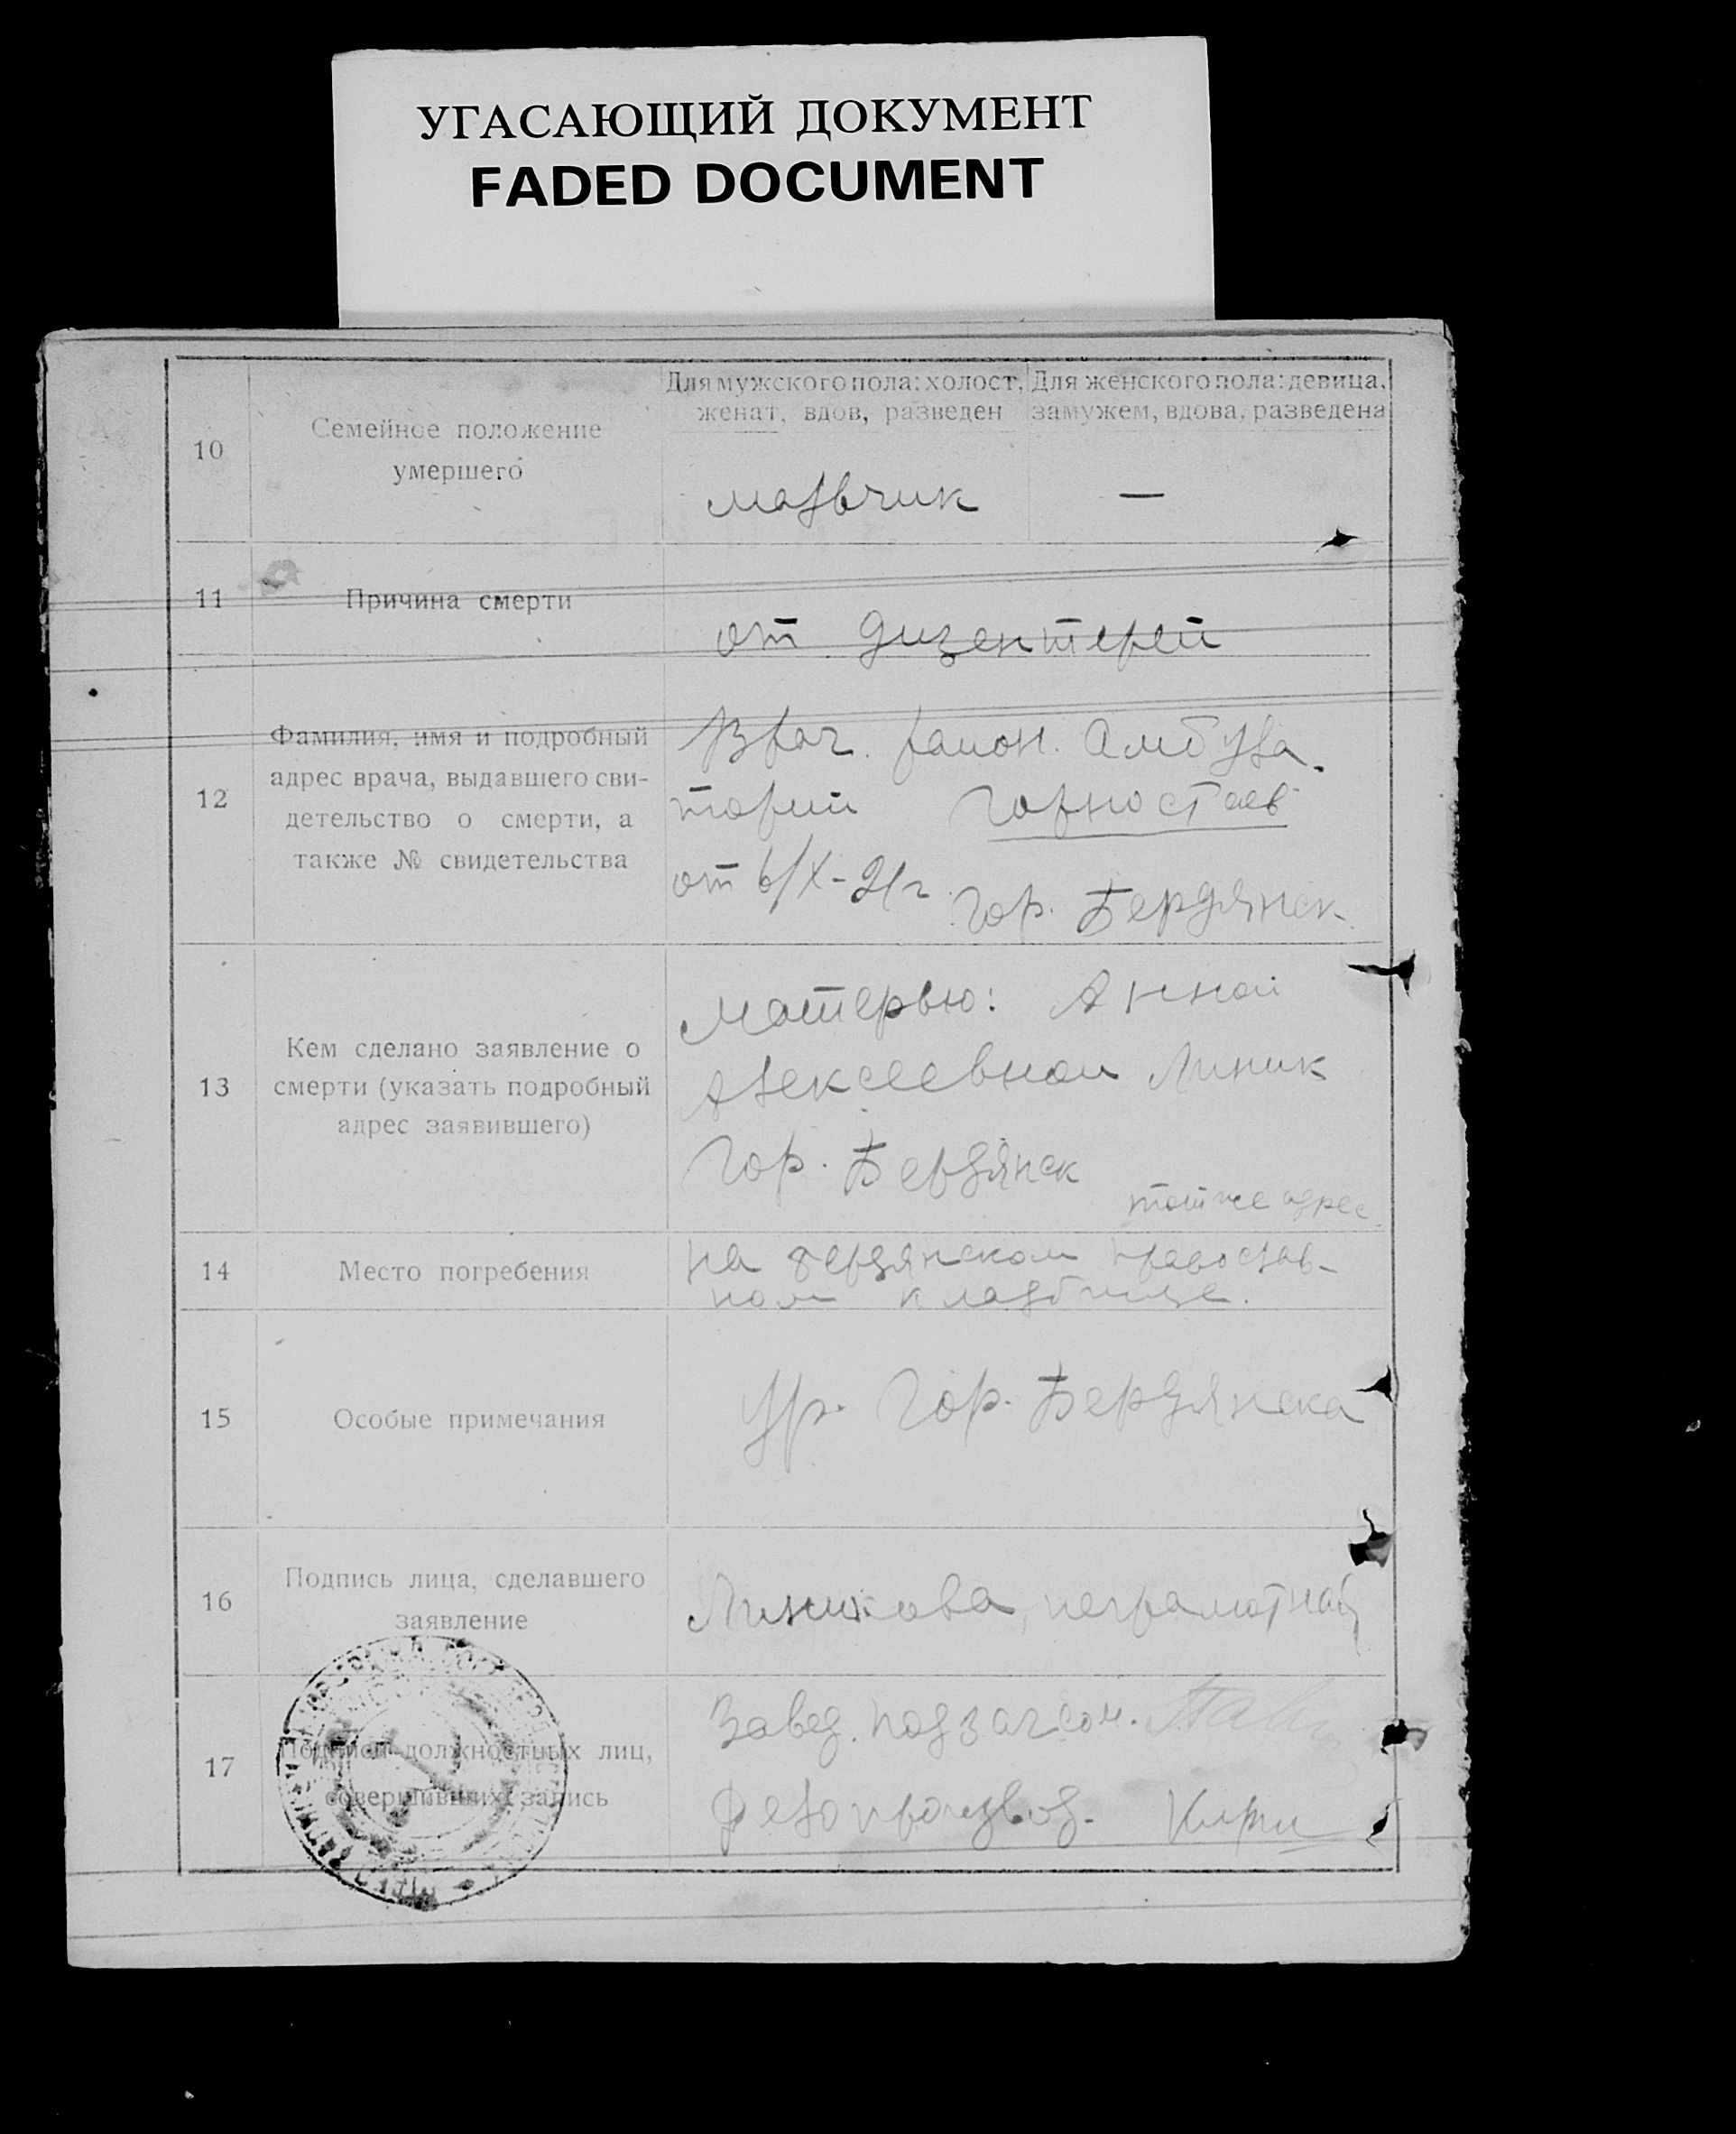 УГАСАЮЩИЙ ДОКУМЕНТ
FADED DOCUMENT
10
Семейное положение
умершего
Для мужского пола: холост,
женат, вдов, разведен
Для женского пола: девица,
замужем, вдова, разведена
мальчик
—
11
Причина смерти
от дизентерей
12
Фамилия, имя и подробный
адрес врача, выдавшего сви-
детельство о смерти, а
также № свидетельства
Врач. район. Амбула-
тории Горностаев
от 6/X-21г.
Гор. Бердянск.
13
Кем сделано заявление о
смерти (указать подробный
адрес заявившего)
Матерью: Анной
Алексеевной Линик
Гор. Бердянск
тот же адрес.
14
Место погребения
на бердянском православ-
ном кладбище.
15
Особые примечания
Ур. Гор. Бердянска
16
Подпись лица, сделавшего
заявление
Линикова, неграмотная
17
Подписи должностных лиц,
совершивших запись
Завед. подзагсом.
Делопроизвод.